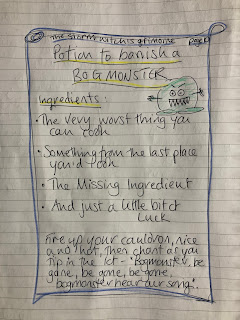 The storm witch's grimoire
Potion to banish a
BOGMONSTER
Ingredients
• The very worst thing you
can cook
• Something from the last place
you'd look
• The Missing Ingredient
• And just a little bit of
Luck
Fire up your cauldron, nice
and hot, then chant as you
tip in the lot - "Bogmonster, be
gone, be gone, be gone,
bogmonster hear our song".